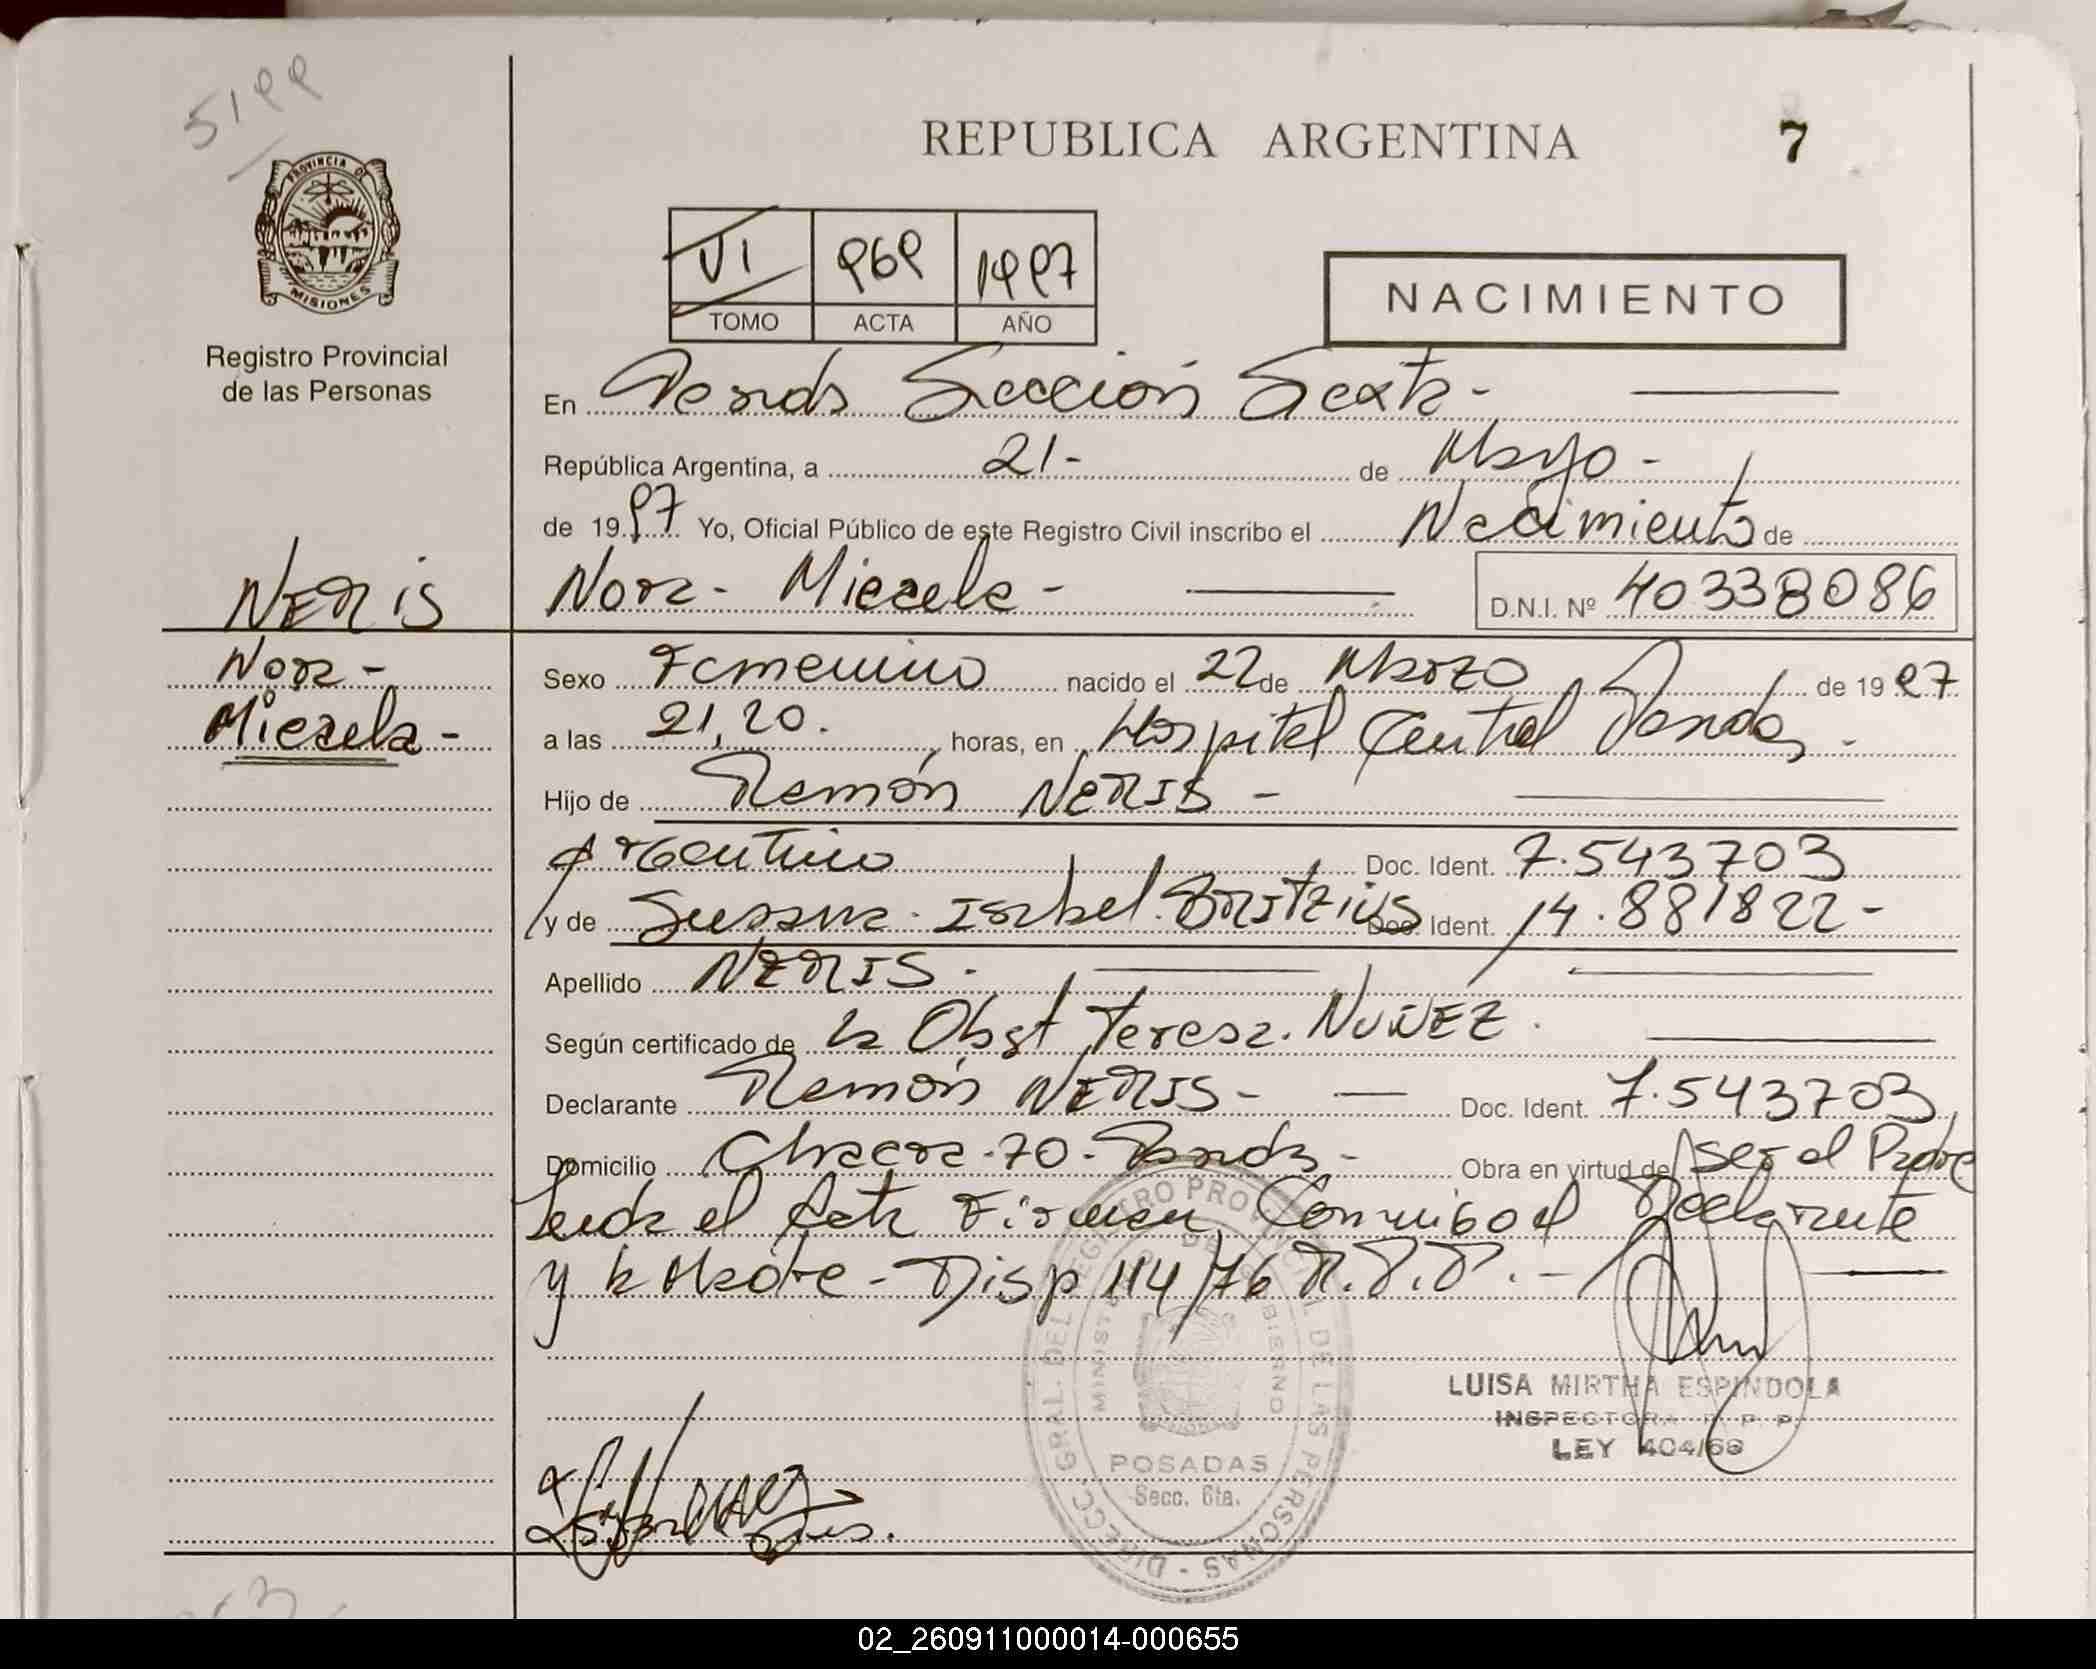 5199
REPUBLICA ARGENTINA 7
PROVINCIA DE
MISIONES
Registro Provincial
de las Personas
VI 969 1997
TOMO ACTA AÑO
NACIMIENTO
En Posadas Sección Sexta -
República Argentina, a 21 - de Mayo -
de 19 97 Yo, Oficial Público de este Registro Civil inscribo el Nacimiento de
Nora - Micaela - D.N.I. Nº 40338086
NERIS
Nora -
Micaela -
Sexo Femenino nacido el 22 de Marzo de 19 97
a las 21,20. horas, en Hospital Central Posadas -
Hijo de Ramón NERIS -
Argentino Doc. Ident. 7.543703
y de Susana - Isabel BRITZIUS Doc. Ident. 14.881822 -
Apellido NERIS -
Según certificado de la Obst Teresa. NUÑEZ.
Declarante Ramón NERIS - Doc. Ident. 7.543703
Domicilio Chacra - 70 - Posadas - Obra en virtud de ser el Padre
Leida el Acta Firman Conmigo el Declarante
y la Madre - Disp 114/76 R.P.P. -
DIRECC. GRAL. DEL REGISTRO PROVINCIAL DE LAS PERSONAS -
MINISTERIO DE GOBIERNO
POSADAS
Secc. 6ta.
LUISA MIRTHA ESPINDOLA
INSPECTORA R. P. P.
LEY 404/68
02_260911000014-000655